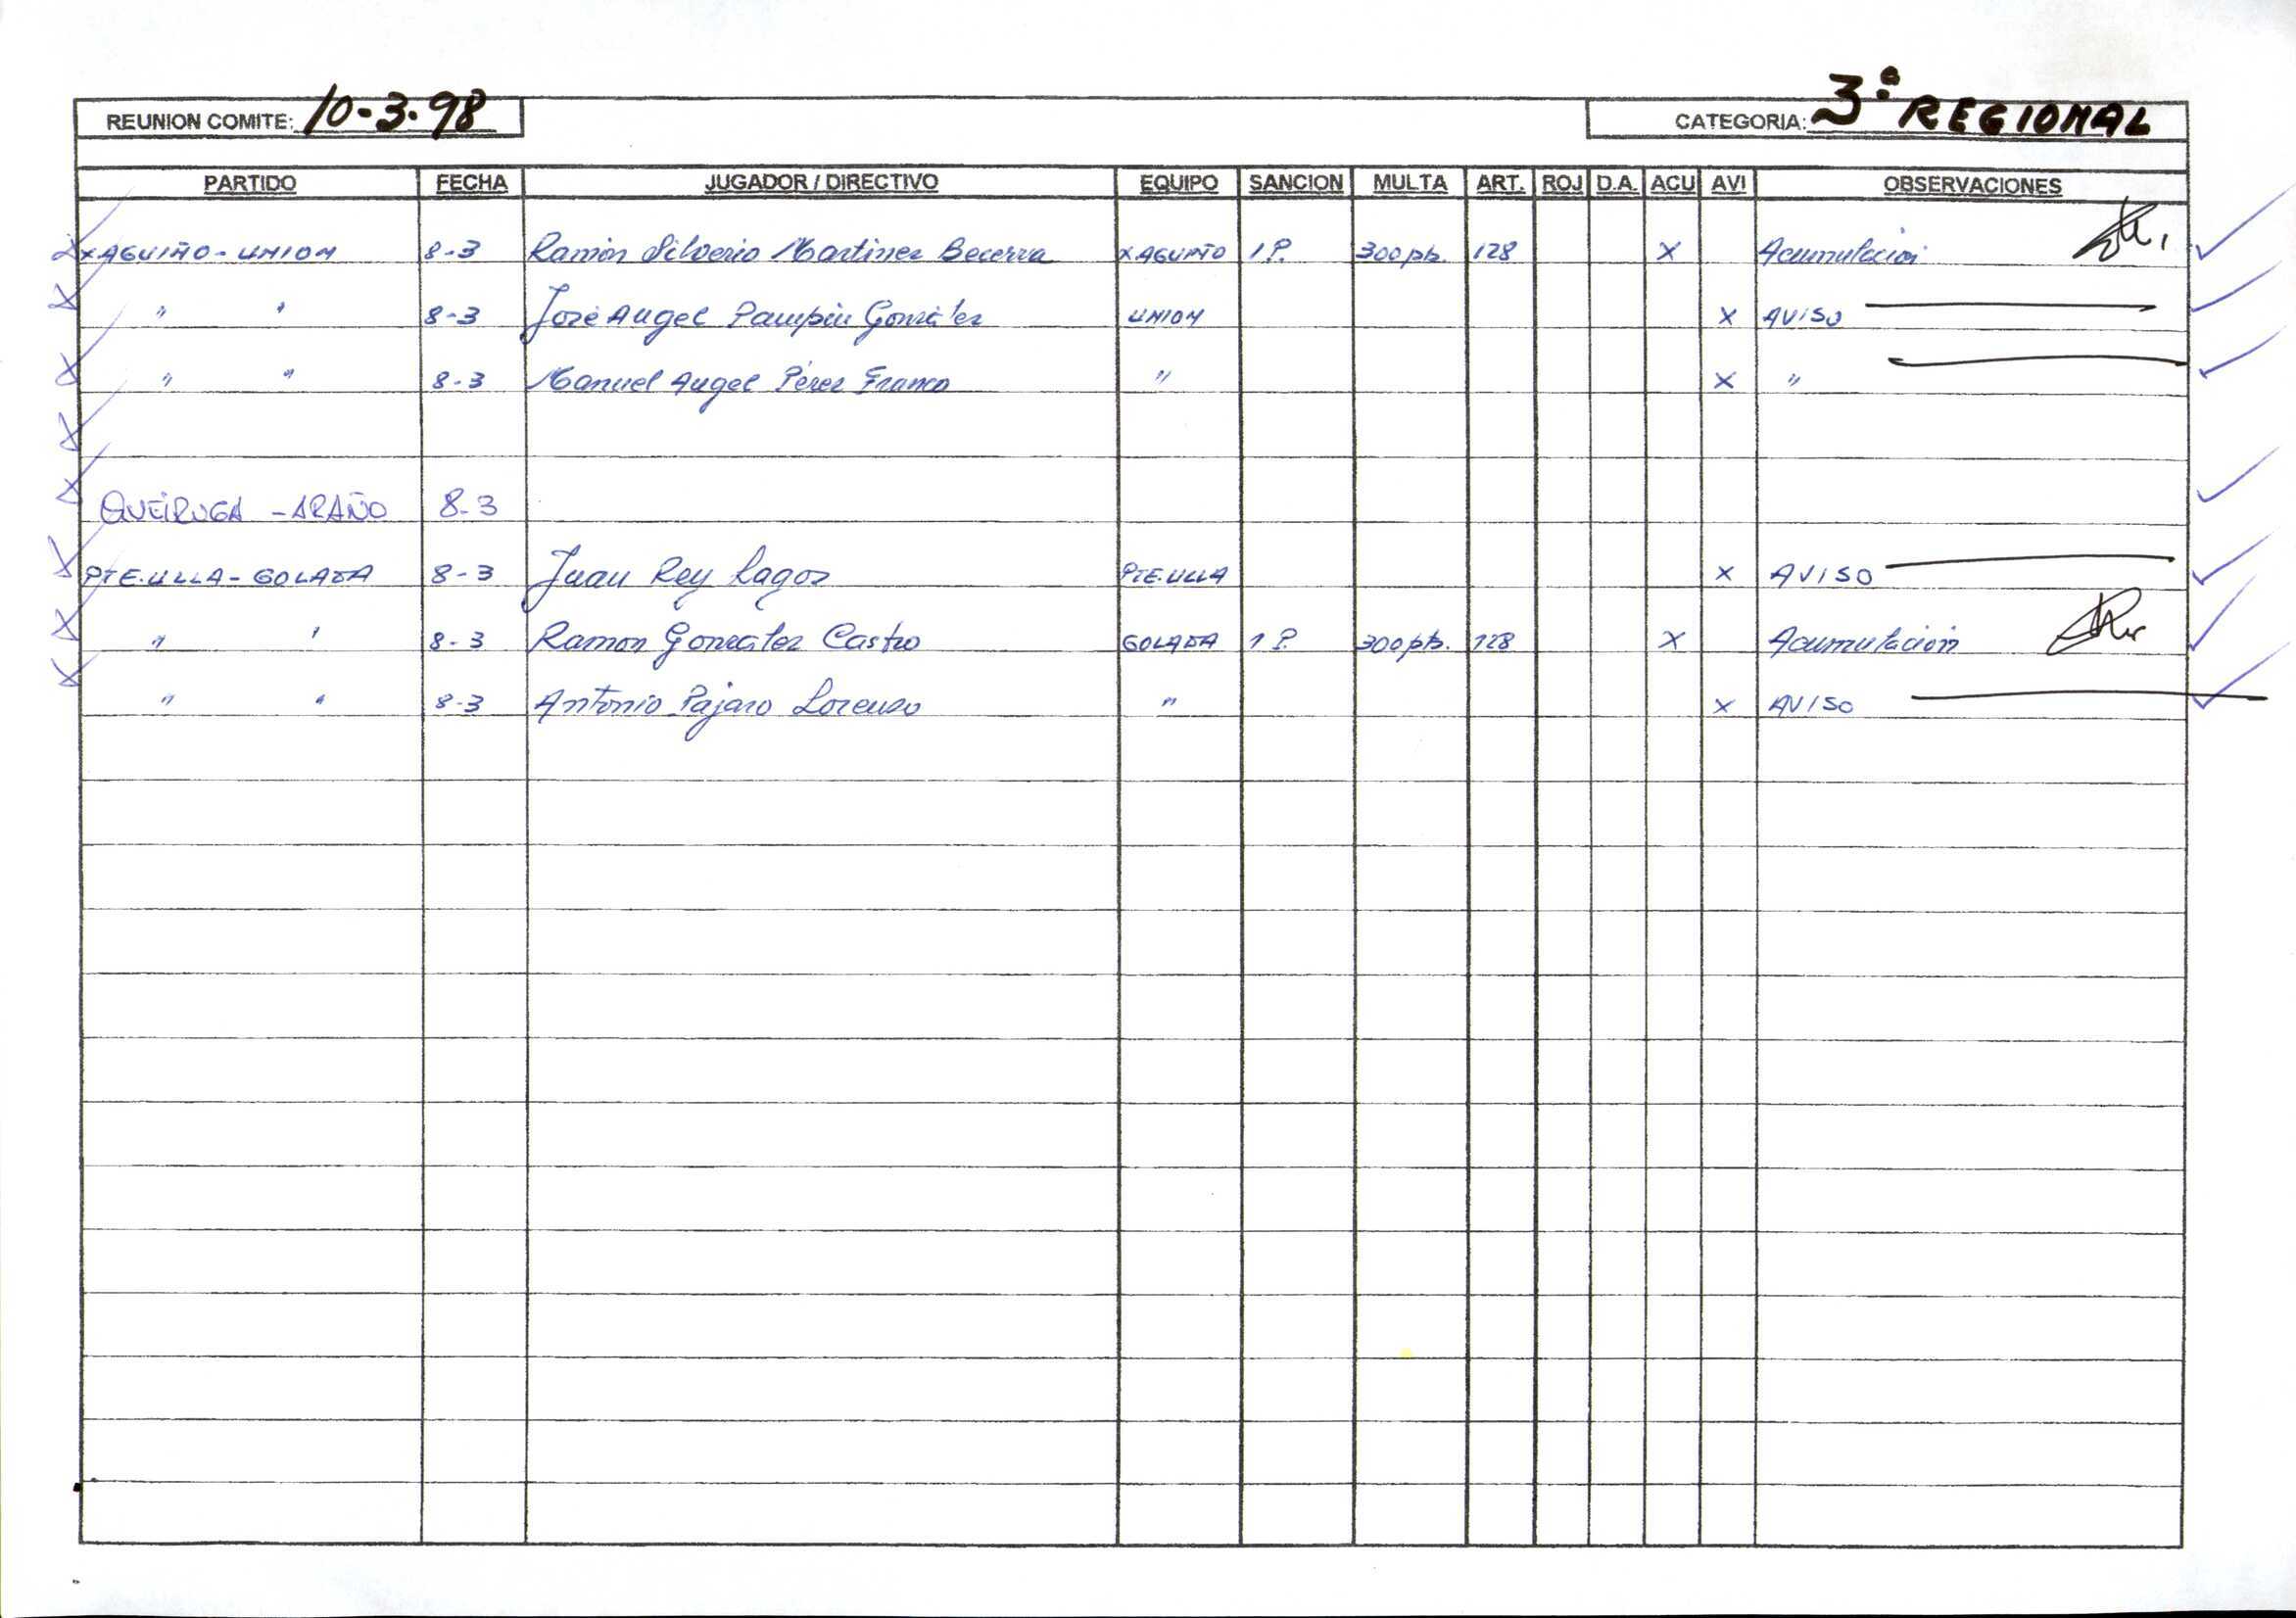 REUNION COMITE: 10-3-98 CATEGORIA: 3ª REGIONAL
PARTIDO FECHA JUGADOR / DIRECTIVO EQUIPO SANCION MULTA ART. ROJ D.A. ACU AVI OBSERVACIONES
XAGUIÑO - UNION 8-3 Ramón Silverio Martinez Becerra XAGUIÑO 1 P. 300 pts. 128 X Acumulación
" " 8-3 José Angel Pampín González UNION X AVISO
" " 8-3 Manuel Angel Pérez Franco " X "
QUEIRUGA - ARAÑO 8-3
PTE. ULLA - GOLADA 8-3 Juan Rey Lagos PTE. ULLA X AVISO
" " 8-3 Ramon González Castro GOLADA 1 P. 300 pts. 128 X Acumulación
" " 8-3 Antonio Pájaro Lorenzo " X AVISO